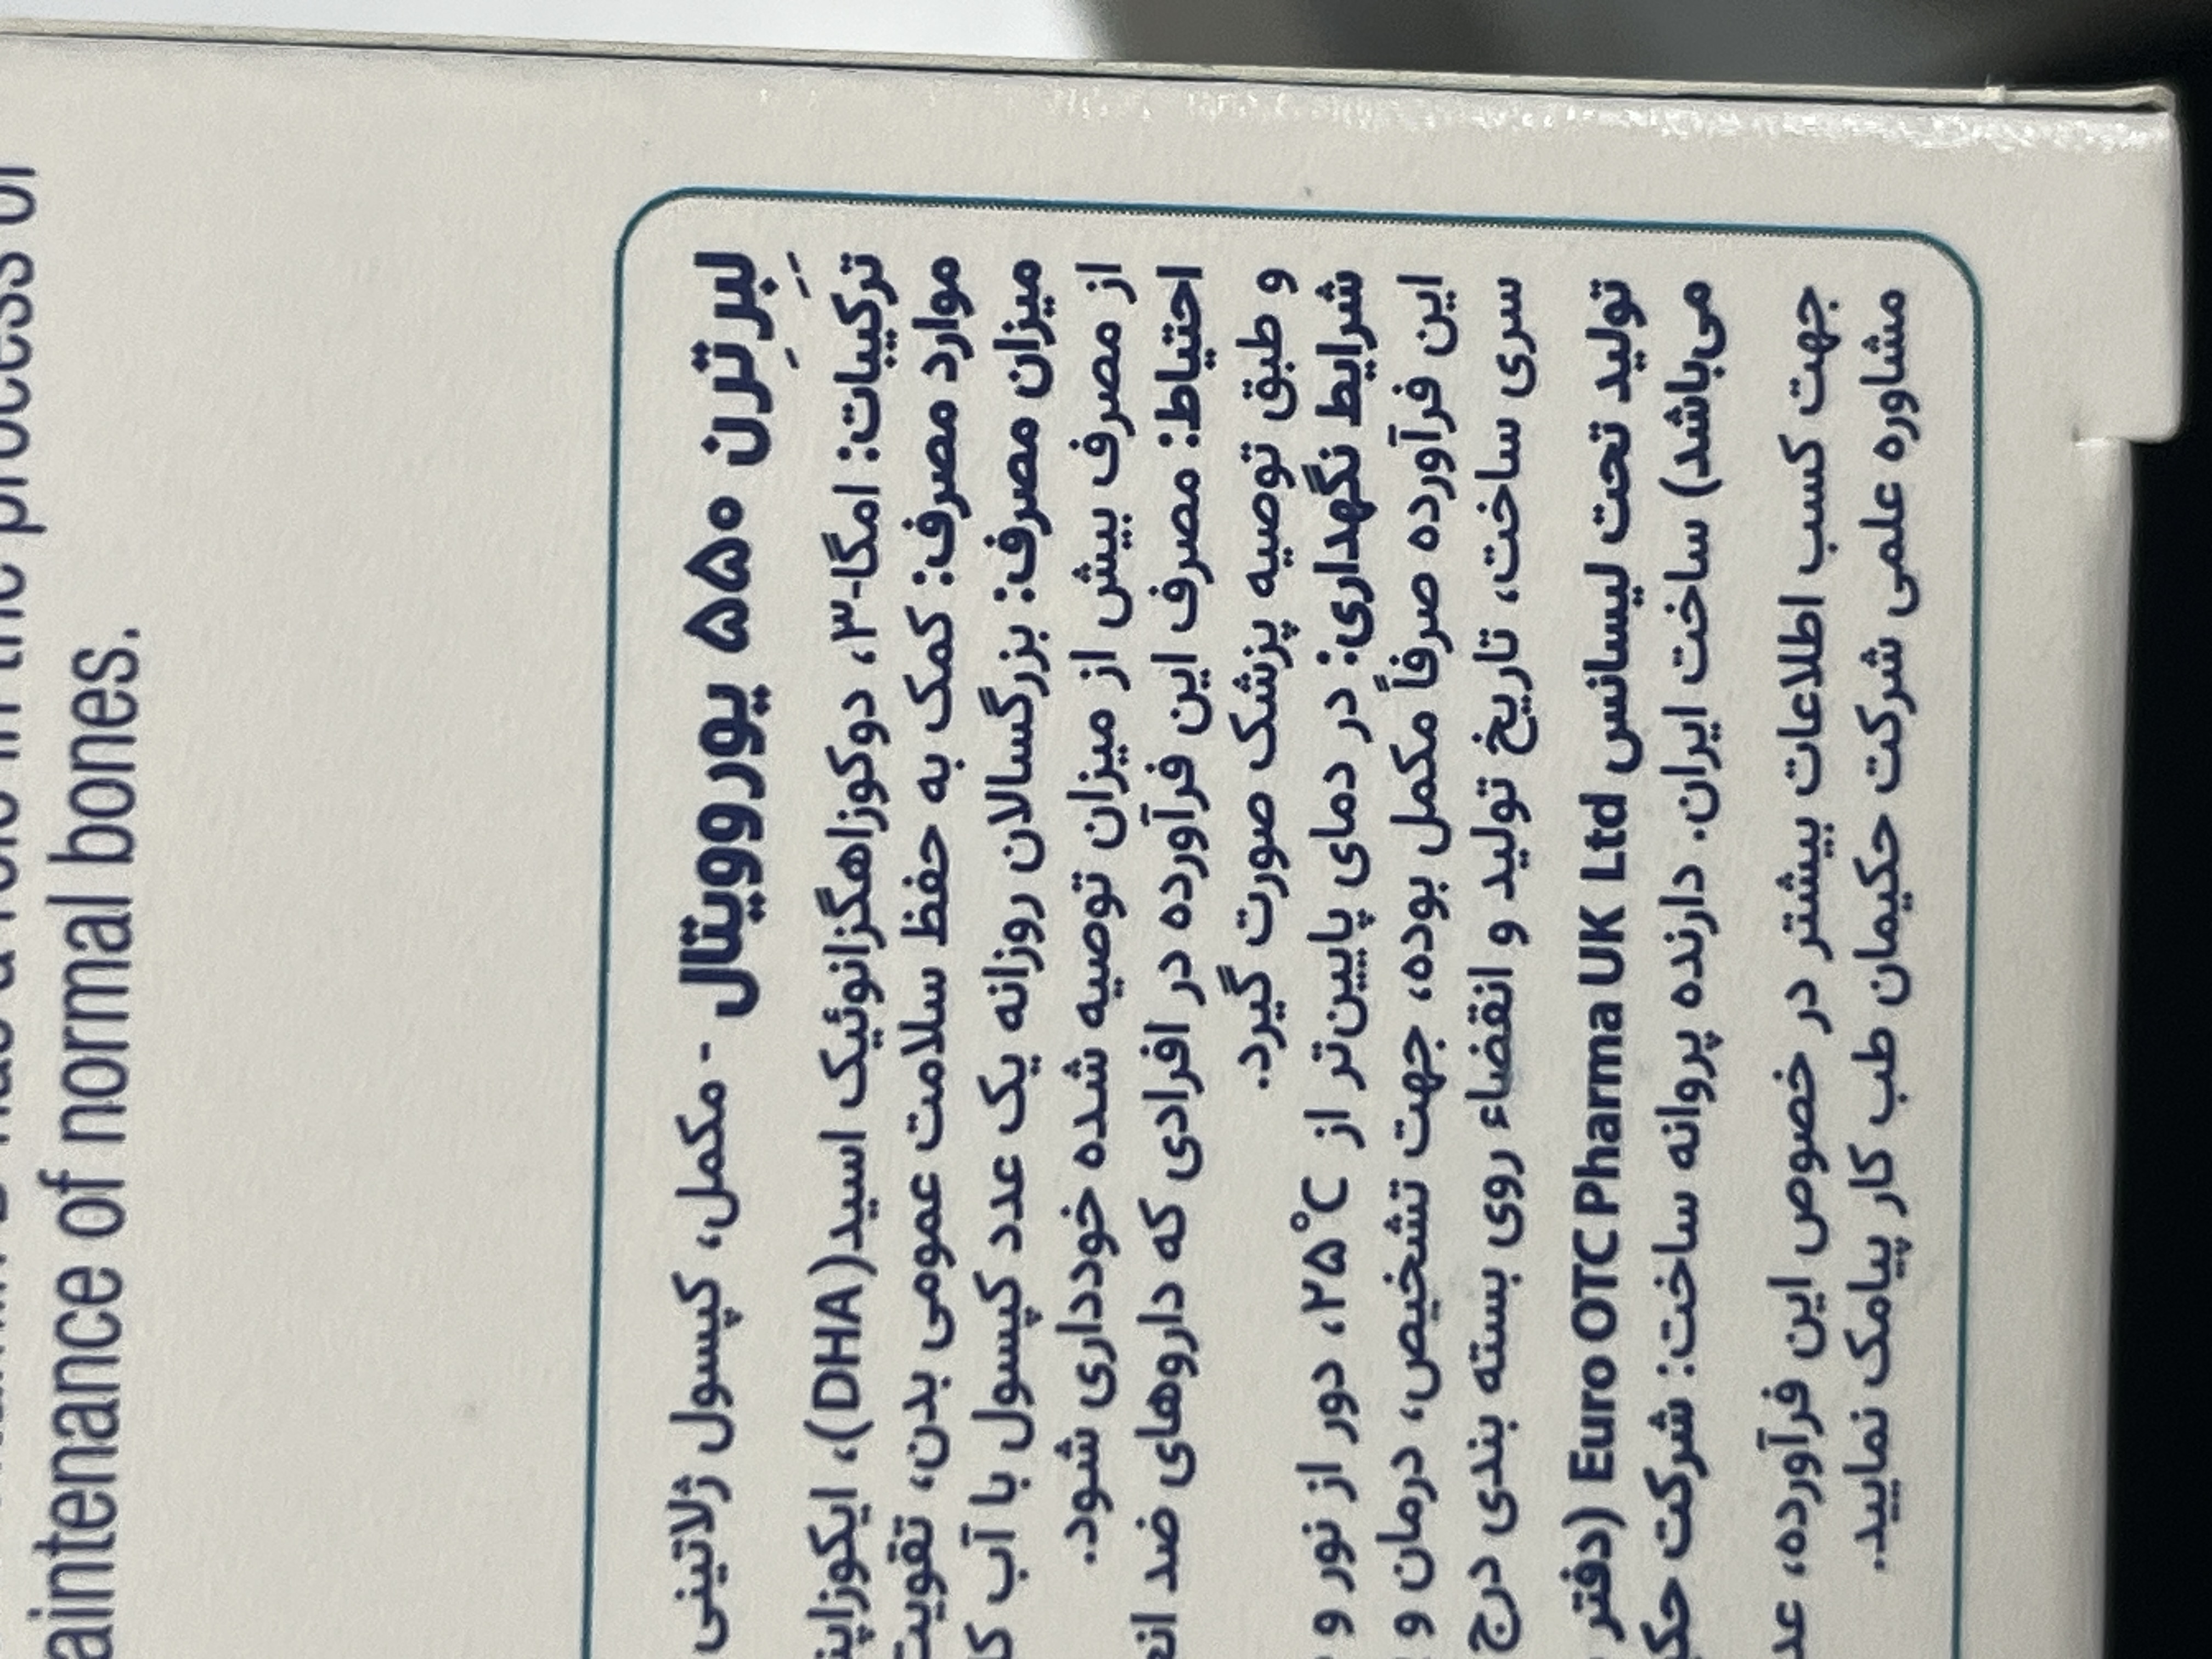 process of
maintenance of normal bones.
لبرترن ۵۵۰ یوروویتال - مکمل، کپسول ژلاتینی
ترکیبات: امگا-۳، دوکوزاهگزانوئیک اسید(DHA)،
موارد مصرف: کمک به حفظ سلامت عمومی بدن، تقویت
میزان مصرف: بزرگسالان روزانه یک عدد کپسول با آب
از مصرف بیش از میزان توصیه شده خودداری شود.
احتیاط: مصرف این فرآورده در افرادی که داروهای ضد
و طبق توصیه پزشک صورت گیرد.
شرایط نگهداری: در دمای پایین‌تر از ۲۵°C، دور از نور و
این فرآورده صرفاً مکمل بوده، جهت تشخیص، درمان و
سری ساخت، تاریخ تولید و انقضاء روی بسته بندی درج
تولید تحت لیسانس Euro OTC Pharma UK Ltd (دفتر
می‌باشد) ساخت ایران. دارنده پروانه ساخت: شرکت
جهت کسب اطلاعات بیشتر در خصوص این فرآورده،
مشاوره علمی شرکت حکیمان طب کار پیامک نمایید.